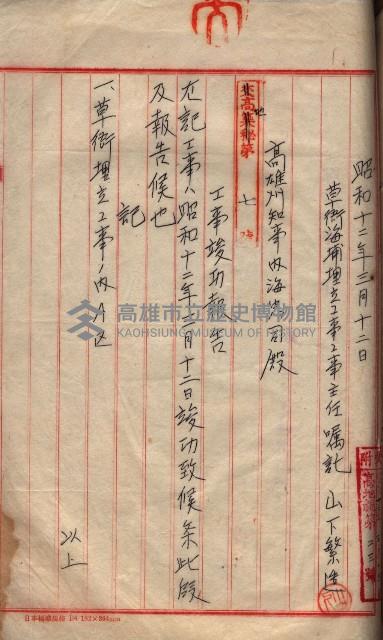 昭和十二年三月十二日
草衙海埔埋立工事工事主任嘱託 山下繁造
高雄州知事内海忠司殿
高秘第 七
工事竣功報告
左記工事ハ昭和十二年三月十二日竣功致候条此段
及報告候也
記
一、草衙埋立工事ノ内A区
以上
高雄市立歷史博物館
KAOHSIUNG MUSEUM OF HISTORY
附
日本標準規格 B4 182×364mm